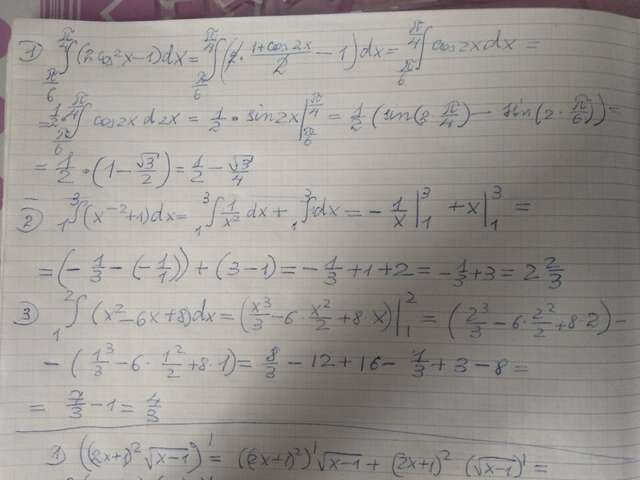 1) ∫_{π/6}^{π/4} (2cos²x−1)dx = ∫_{π/6}^{π/4} (2·(1+cos2x)/2 −1)dx = ∫_{π/6}^{π/4} cos2xdx =
= 1/2 ∫_{π/6}^{π/4} cos2x d2x = 1/2 · sin2x |_{π/6}^{π/4} = 1/2 (sin(2·π/4) − sin(2·π/6)) =
= 1/2 · (1 − √3/2) = 1/2 − √3/4
2) ₁∫³ (x⁻²+1)dx = ₁∫³ 1/x² dx + ₁∫³ dx = −1/x |₁³ + x |₁³ =
= (−1/3 − (−1/1)) + (3−1) = −1/3 +1+2 = −1/3+3 = 2 2/3
3) ₁∫² (x²−6x+8)dx = (x³/3 −6·x²/2 +8·x) |₁² = (2³/3 −6·2²/2 +8·2) −
− (1³/3 −6·1²/2 +8·1) = 8/3 −12+16− 1/3 +3−8 =
= 7/3 −1 = 4/3
1) ((2x+1)² √(x−1))' = ((2x+1)²)' √(x−1) + (2x+1)² (√(x−1))' =